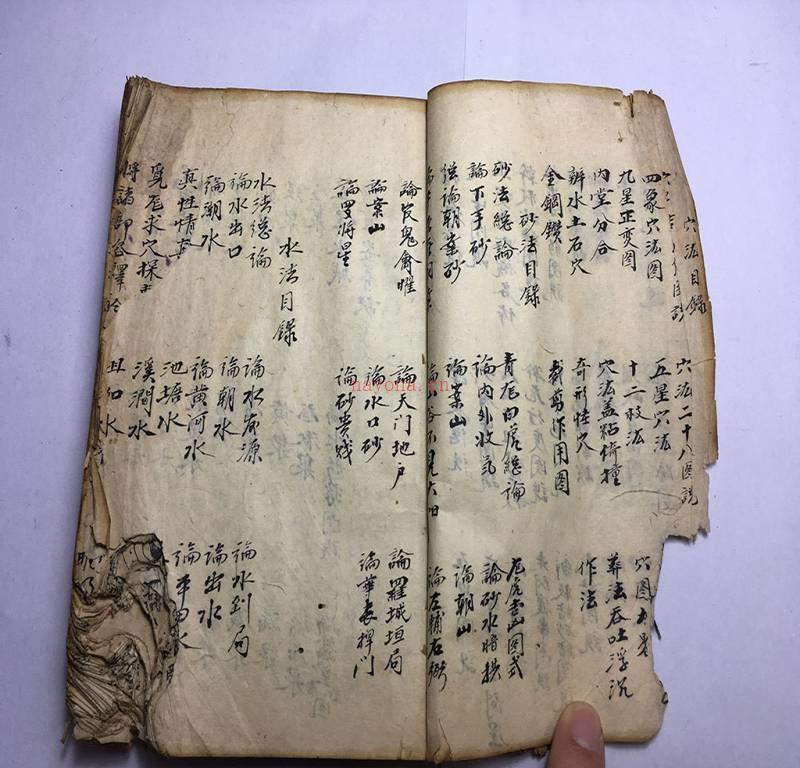 穴法目錄
穴法二十八圖説
四象穴法圖 五星穴法
九星正变圖 十二杖法 葬法吞吐浮沉
内堂分合 穴法盖粘倚撞 作法
辨水土石穴 奇形怪穴
金鋼鑽 裁剪作用圖
砂法目錄
砂法總論 青龙白虎總論 龙虎吉凶圖式
論下手砂 論内外收氣 論砂水暗拱
總論朝案砂 論案山 論朝山
論左輔右弼
論官鬼禽曜 論天门地户 論羅城垣局
論案山 論水口砂 論華表捍门
論罗将星 論砂贵贱
水法目錄
水法總論 論水龙源 論水到局
論水出口 論朝水 論出水
論潮水 論黄河水 論平田水
真性情 池塘水
覓龙求穴探 溪澗水
nayona.cn